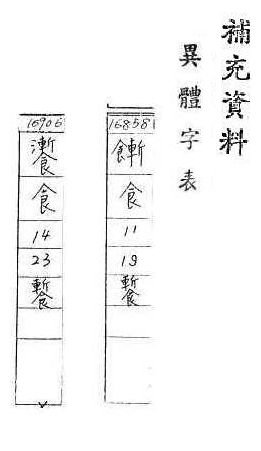 補充資料
異體字表
16858
食
11
19
16906
食
14
23